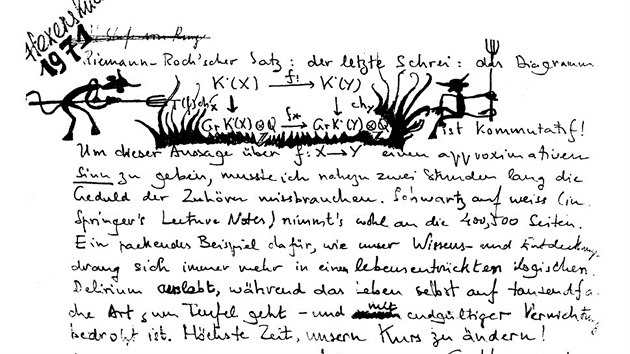 Hexenküche
1971
Riemann-Roch'scher Satz: der letzte Schrei: das Diagramm
K·(X) f! K·(Y)
T(f)chx ↓ ↓ chy
Gr K·(X)⊗Q f* Gr K·(Y)⊗Q
ist kommutatif!
Um dieser Aussage über f: X → Y einen approximativen
Sinn zu geben, musste ich nahezu zwei Stunden lang die
Geduld der Zuhörer missbrauchen. Schwartz auf weiss (in
Springer's Lecture Notes) nimmt's wohl an die 400, 500 Seiten.
Ein packendes Beispiel dafür, wie unser Wissens- und Entdeckungs
drang sich immer mehr in einem lebensentrückten logischen
Delirium auslebt, während das Leben selbst auf tausendfa
che Art zum Teufel geht - und mit endgültiger Vernichtung
bedroht ist. Höchste Zeit, unsern Kurs zu ändern!